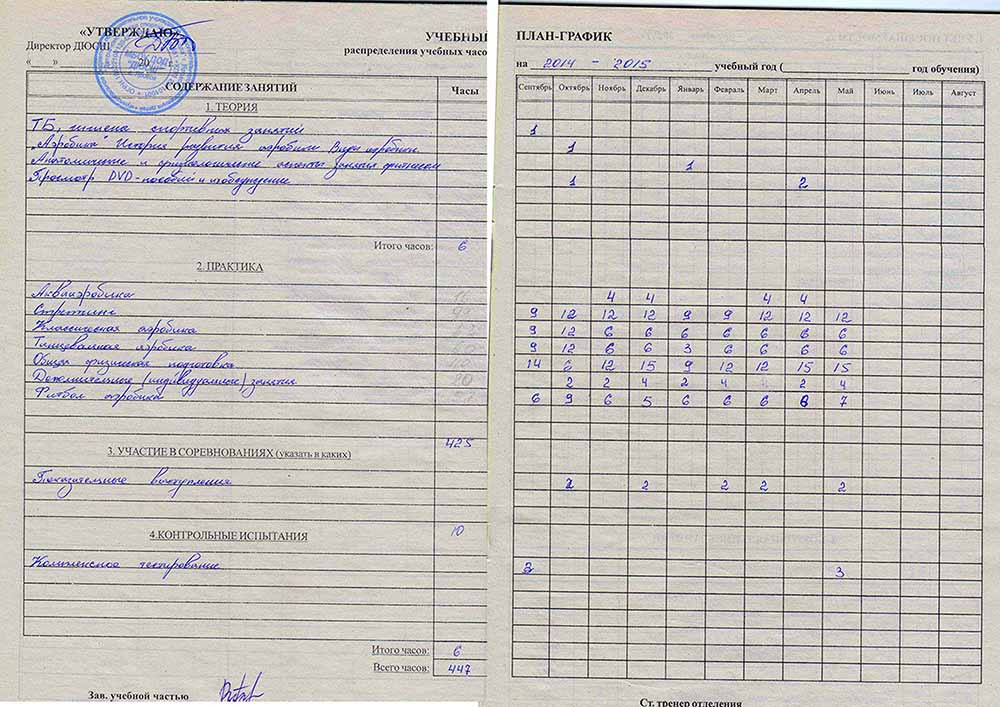 «УТВЕРЖДАЮ»
Директор ДЮСШ
« » 20 г.
УЧЕБНЫЙ ПЛАН-ГРАФИК
распределения учебных часо на 2014 - 2015 учебный год ( год обучения)
СОДЕРЖАНИЕ ЗАНЯТИЙ Часы Сентябрь Октябрь Ноябрь Декабрь Январь Февраль Март Апрель Май Июнь Июль Август
1. ТЕОРИЯ
ТБ, гигиена спортивных занятий 1
"Аэробика" История развития аэробики Виды аэробики 1
Анатомические и физиологические аспекты занятия фитнесом 1
Просмотр DVD-пособий и их обсуждение 1 2
Итого часов: 6
2. ПРАКТИКА
Аквааэробика 4 4 4 4
Стретчинг 9 12 12 12 9 9 12 12 12
Классическая аэробика 9 12 6 6 6 6 6 6 6
Танцевальная аэробика 9 12 6 6 3 6 6 6 6
Общая физическая подготовка 14 12 15 9 12 12 15 15
Дополнительные (индивидуальные) занятия 20 2 2 4 2 4 4 2 4
Фитбол аэробика 6 9 6 5 6 6 6 6 7
425
3. УЧАСТИЕ В СОРЕВНОВАНИЯХ (указать в каких)
Показательные выступления 2 2 2 2 2
4.КОНТРОЛЬНЫЕ ИСПЫТАНИЯ 10
Комплексное тестирование 3 3
Итого часов: 6
Всего часов: 447
Зав. учебной частью
Ст. тренер отделения